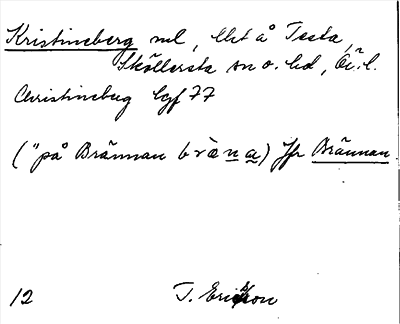 Kristineberg nel, lht å Testa,
Sköllersta sn o. hd, Ör. l.
Christineberg Lgf 77
("på Brännan bràna) Jfr Brännan.
12 T. Ericsson